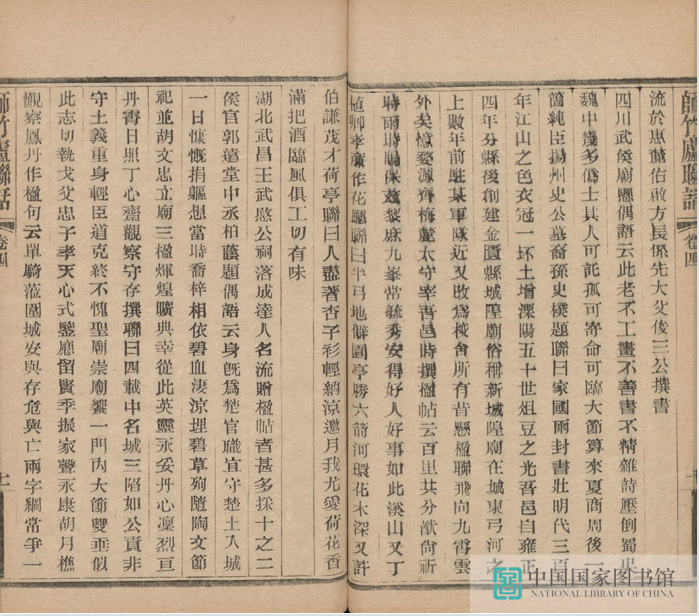 師竹廬聯話 卷四
流於惠蕙佑敢方長係先大父後三公撰書
四川武侯廟懸偶語云此老不工畫不善書不精雜詩壓倒蜀吳
魏中幾多傷士其人可託孤可寄命可臨大節算來夏商周後一
個純臣揚州史公墓裔孫史樸題聯曰家國兩封書壯明代三百
年江山之色衣冠一坏土增溧陽五十世俎豆之光吾邑自雍正
四年分縣後創建金匱縣城隍廟俗稱新城隍廟在城東弓河之
上數年前駐某軍隊近又改爲校舍所有昔懸楹聯飛向九霄雲
外矣憶婺源齊梅麓太守宰吾邑時撰楹帖云百里共分猷尙祈
時雨時暘保茲黎庶九峯常毓秀安得好人好事如此溪山又丁
植卿孝廉作花廳聯曰半弓地僻園亭勝六箭河環花木深又許
伯謙茂才荷亭聯曰人盡著杏子衫輕納涼邀月我尤愛荷花香
滿把酒臨風俱工切有味
湖北武昌王武愍公祠落成達人名流贈楹帖者甚多採十之二
侯官郭遠堂中丞柏蔭題偶語云身旣爲楚官職宜守楚土入城
一日慷慨捐軀想當時喬梓相依碧血淒涼埋碧草殉隨陶文節
祀並胡文忠立廟三楹輝煌曠典幸從此英靈永妥丹心凜烈亘
丹霄日照丁心齋觀察守存撰聯曰四載中名城三陷如公責非
守土義重身輕臣道克終不愧聖廟崇廟饗一門內大節雙垂似
此志切執戈父忠子孝天心式鑒應留賢季振家聲永康胡月樵
觀察鳳丹作楹句云單騎蒞圍城安與存危與亡兩字綱常爭一
師竹廬聯話 卷四 十一
中国国家图书馆
NATIONAL LIBRARY OF CHINA